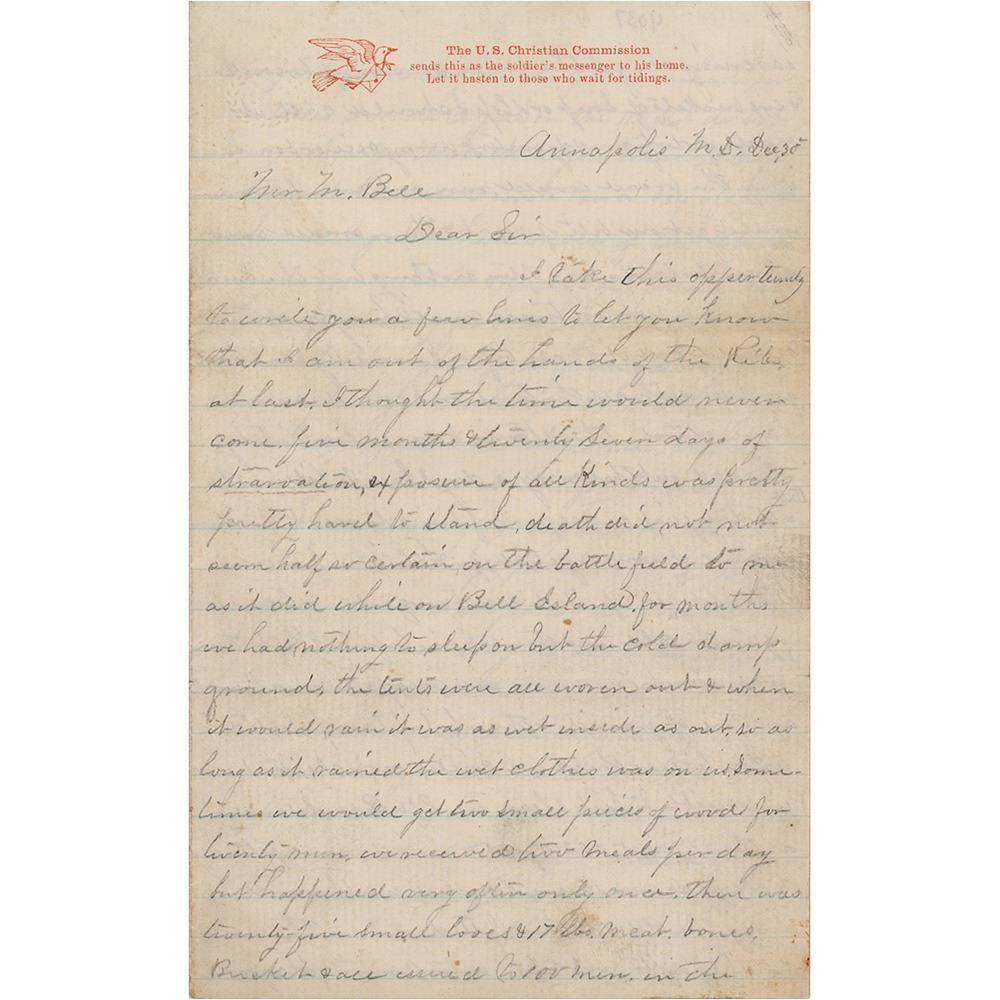 The U.S. Christian Commission
sends this as the soldier's messenger to his home.
Let it hasten to those who wait for tidings.
Annapolis M.D. Dec, 30
Mr. M. Bell
Dear Sir
I take this oppertunity
to write you a few lines to let you know
that I am out of the hands of the Rebs,
at last. I thought the time would never
come. five months & twenty seven days of
starvation, exposure of all kinds was pretty
pretty hard to stand, death did not not
seem half so certain on the battle field to me
as it did while on Bell Island. for months
we had nothing to sleep on but the cold damp
ground, the tents were all woren out & when
it would rain it was as wet inside as out, so as
long as it rained the wet clothes was on us, Some-
times we would get two small pieces of wood for
twenty men, we received two meals per day
but happened very often only once. then was
twenty-five small loves & 17 lbs. meat. bones,
Bucket & all issued to 100 men. in the